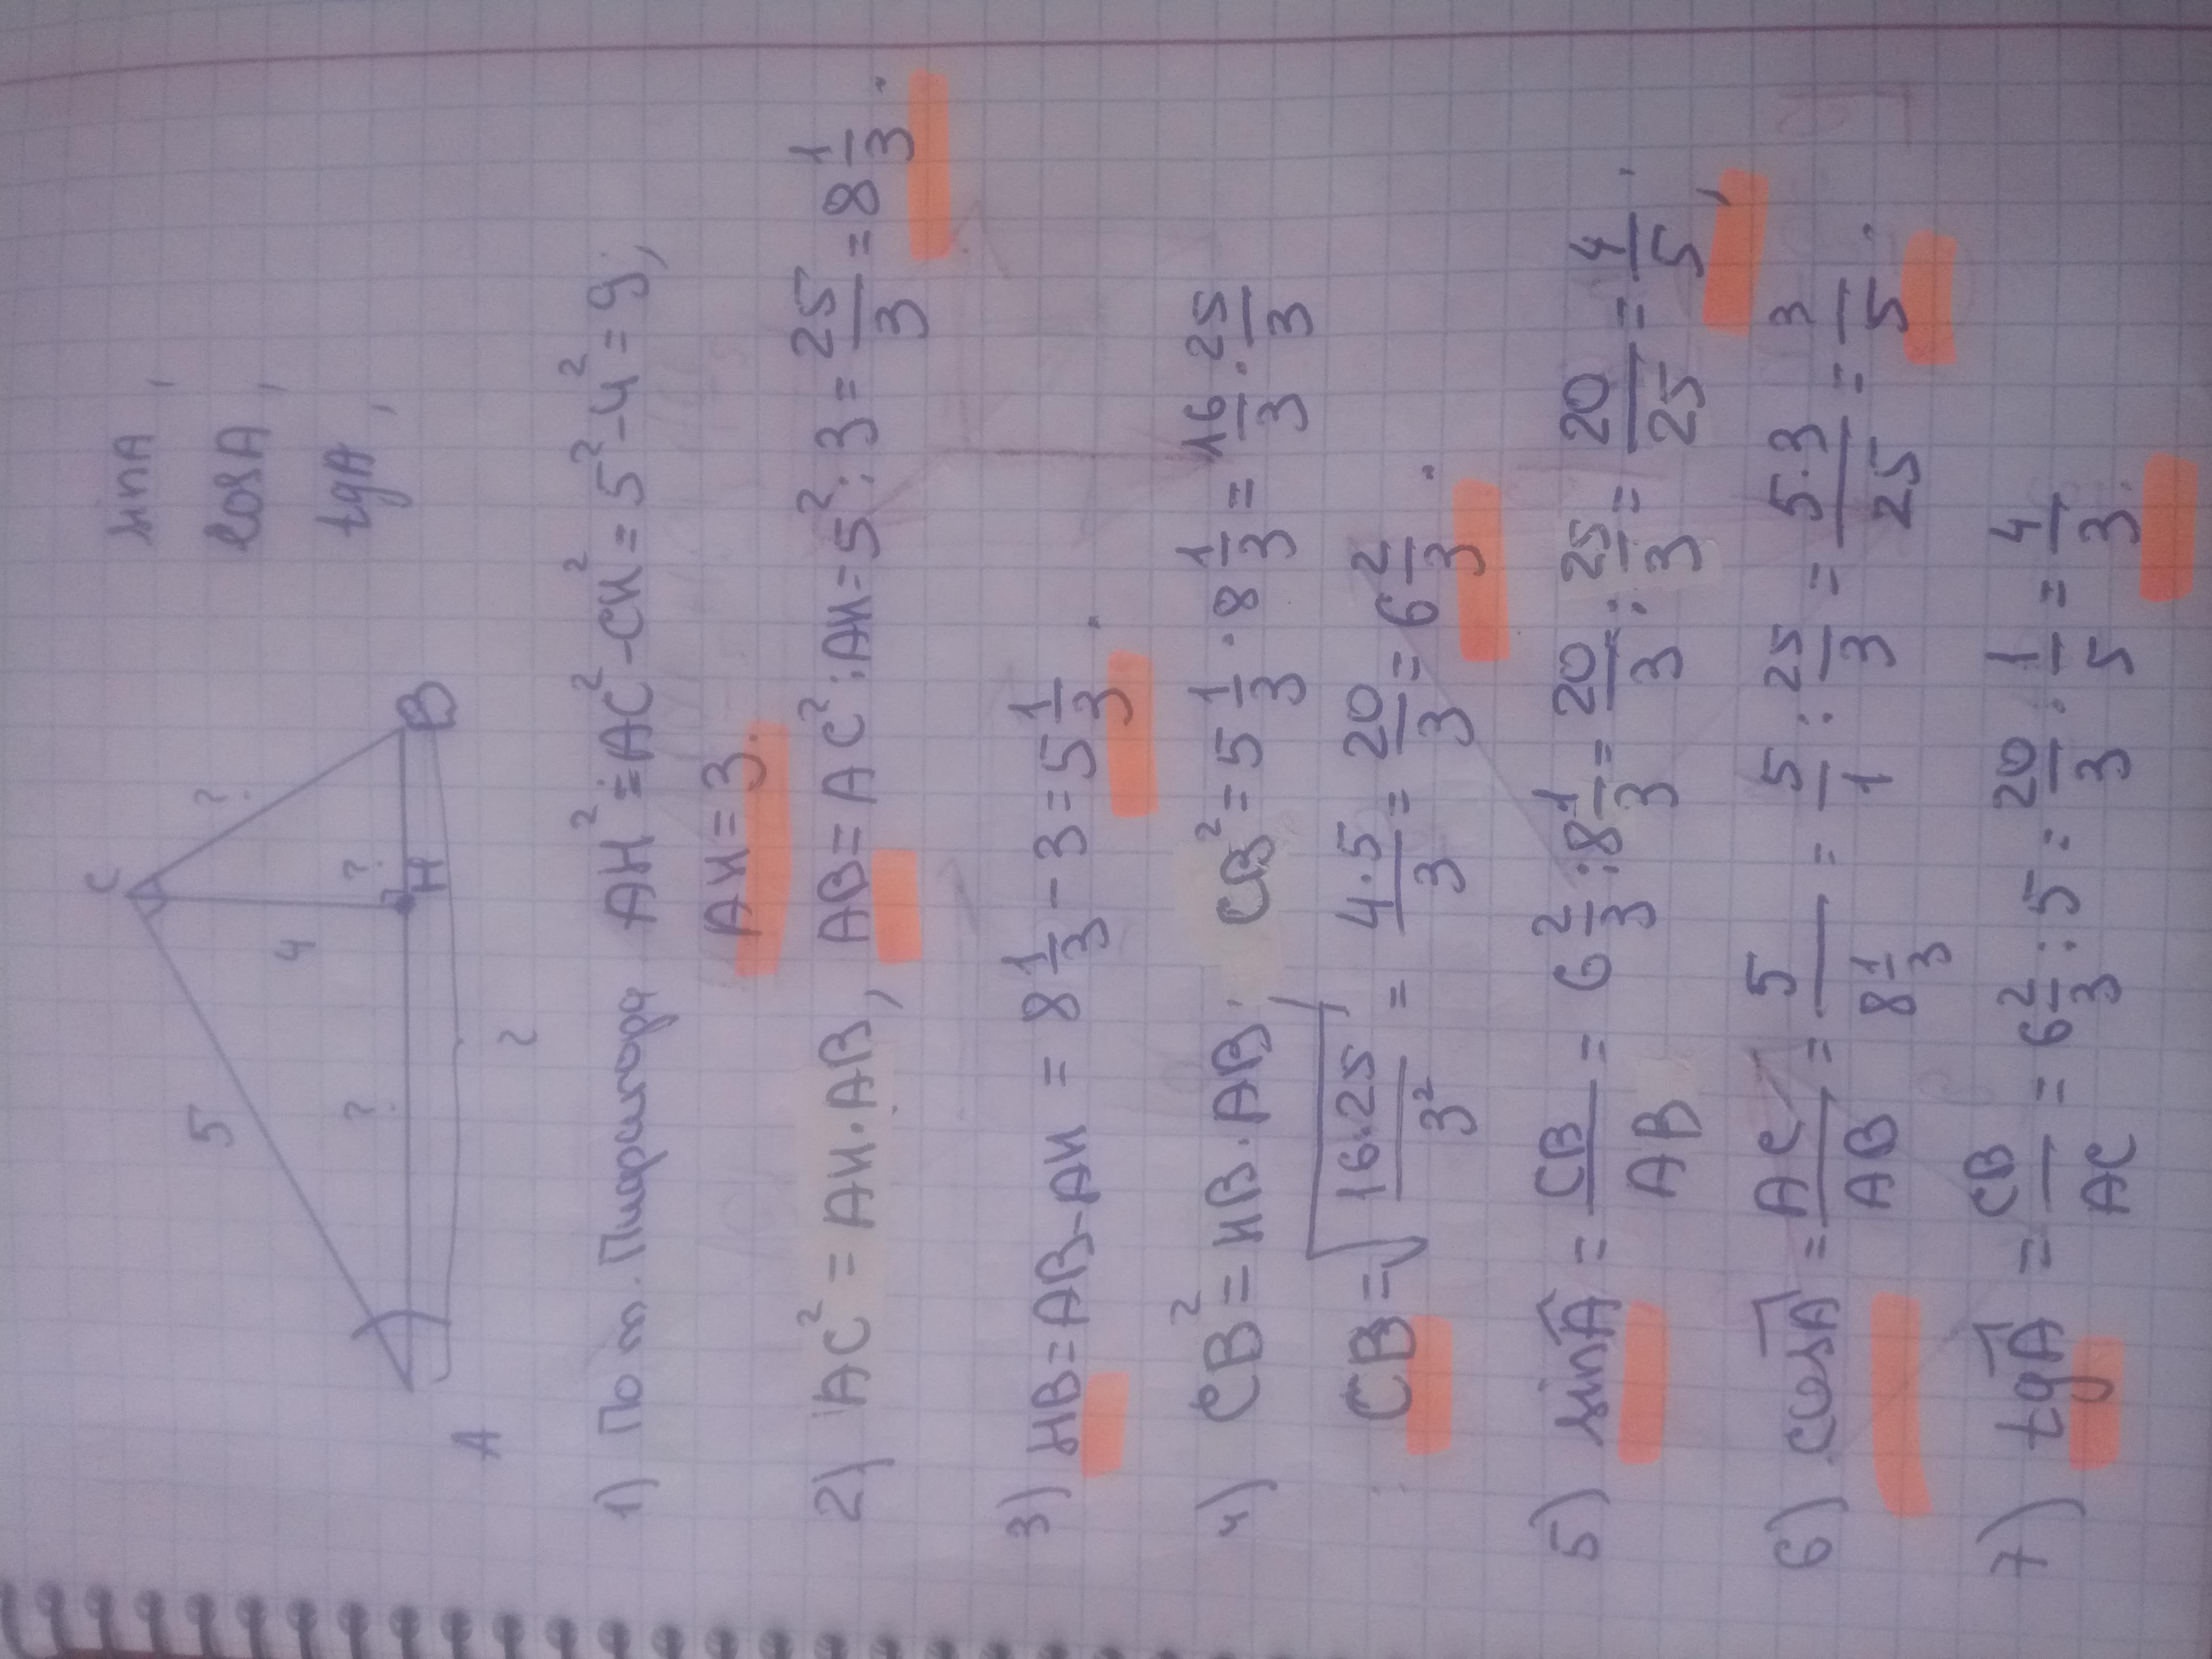 sinA,
cosA,
tgA,
C
5
4
?
?
?
H
B
A
?
1) По т. Пифагора AH² = AC² - CH² = 5² - 4² = 9;
AH = 3.
2) AC² = AH · AB, AB = AC² : AH = 5² : 3 = 25/3 = 8 1/3.
3) HB = AB - AH = 8 1/3 - 3 = 5 1/3.
4) CB² = HB · AB. CB² = 5 1/3 · 8 1/3 = 16/3 · 25/3
CB = √(16·25/3²) = 4·5/3 = 20/3 = 6 2/3.
5) sinA = CB/AB = 6 2/3 : 8 1/3 = 20/3 : 25/3 = 20/25 = 4/5,
6) cosA = AC/AB = 5/(8 1/3) = 5/1 : 25/3 = 5·3/25 = 3/5.
7) tgA = CB/AC = 6 2/3 : 5 = 20/3 · 1/5 = 4/3.